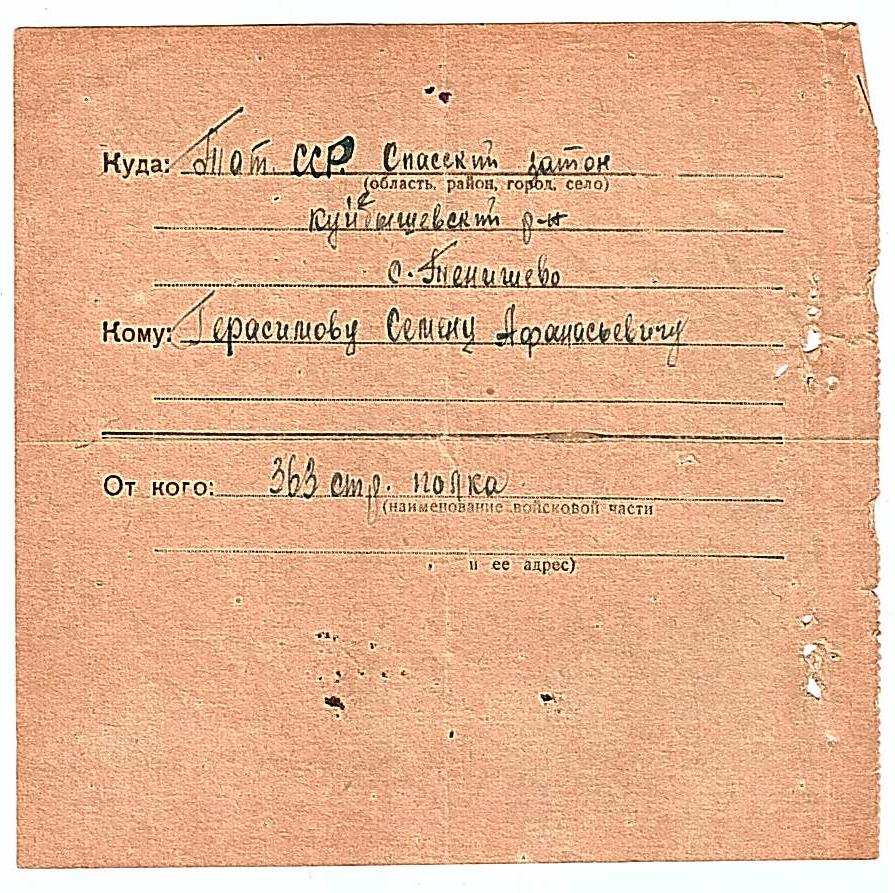 Куда: Тат. ССР. Спасский затон
(область, район, город, село)
Куйбышевский р-н
с. Тенишево
Кому: Герасимову Семену Афанасьевичу
От кого: 363 стр. полка
(наименование войсковой части
и ее адрес)